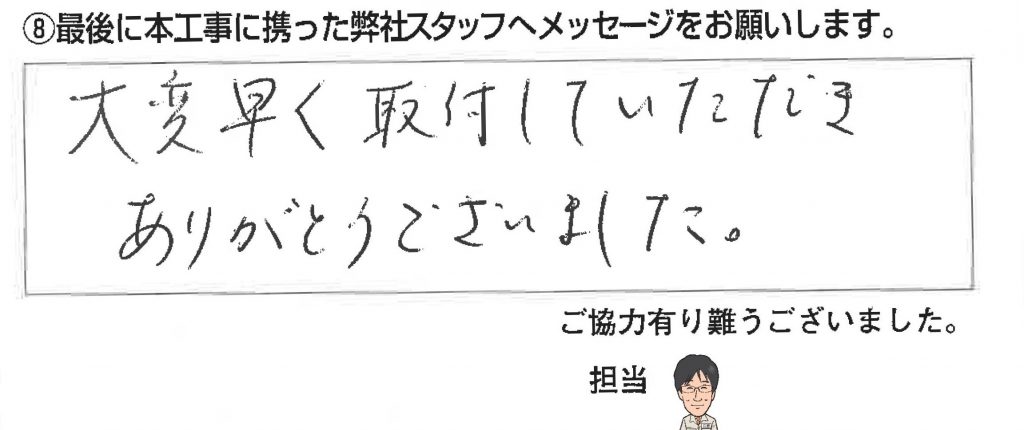 ⑧最後に本工事に携った弊社スタッフへメッセージをお願いします。
大変早く取付していただき
ありがとうございました。
ご協力有り難うございました。
担当